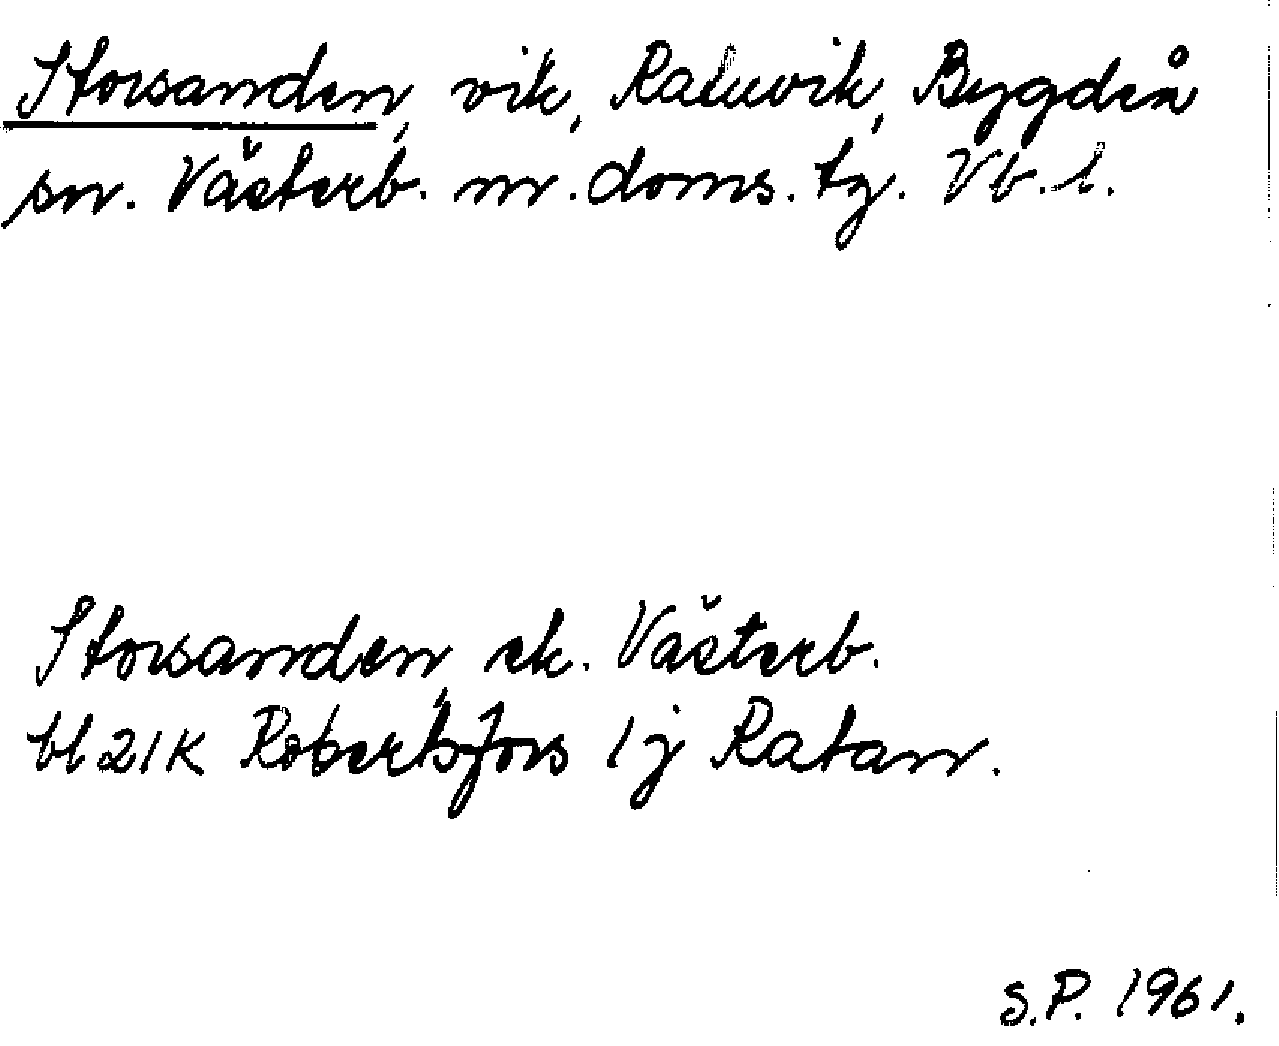 Storsanden, vik, Ratuvik, Bygdeå
sn. Västerb. nr. doms. tg. Vb. l.
Storsanden, ek. Västerb.
bl 21K Robertsfors 1j Ratan.
S.P. 1961.